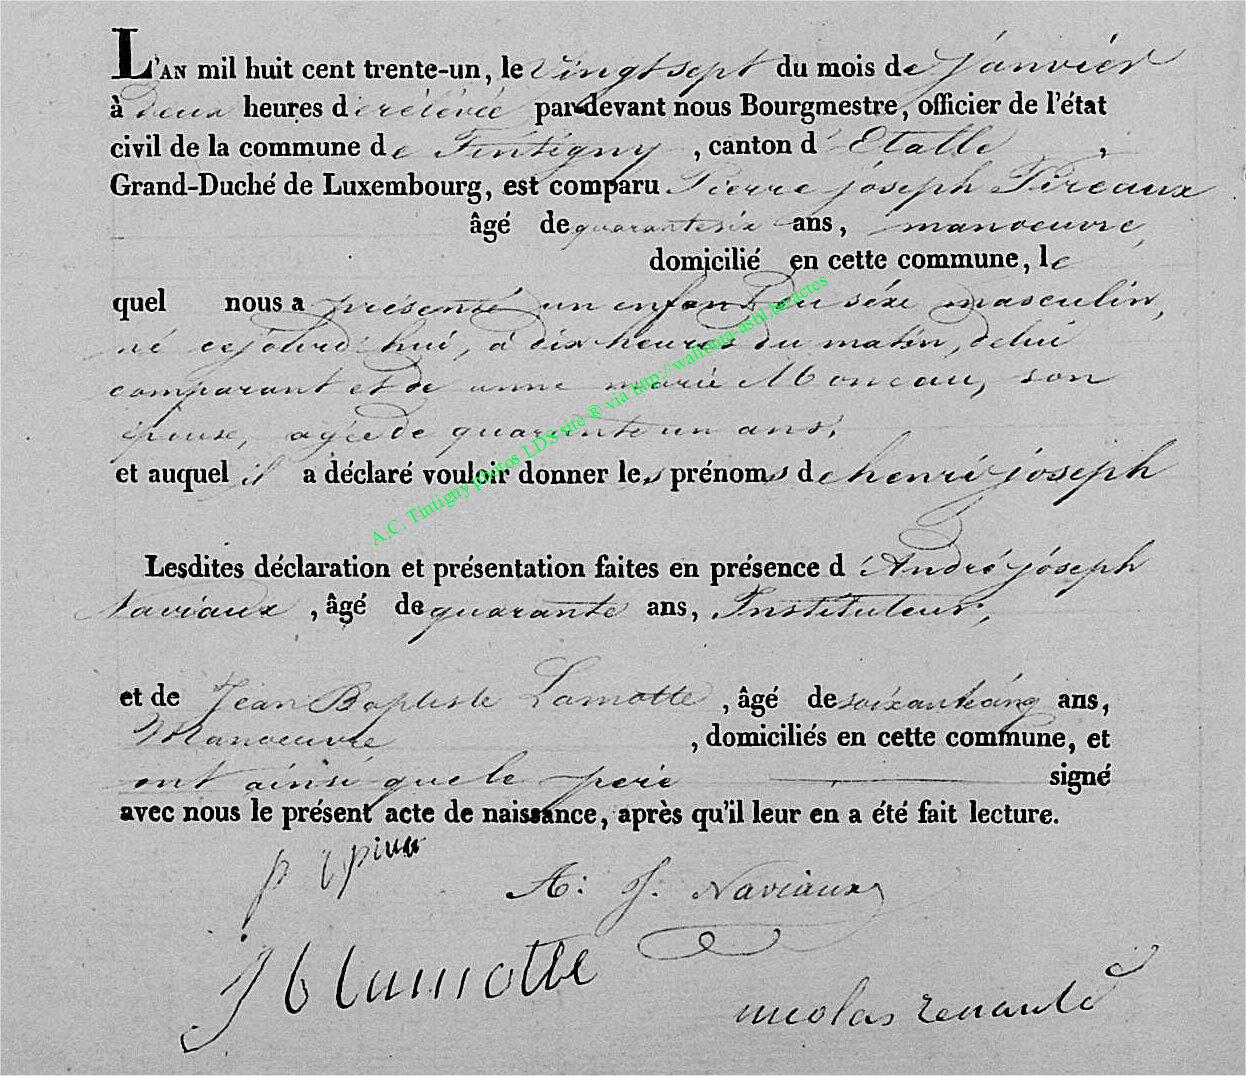 L'AN mil huit cent trente-un, le vingt sept du mois de janvier
à deux heures de rélévée pardevant nous Bourgmestre, officier de l'état
civil de la commune de Tintigny, canton d'Etalle,
Grand-Duché de Luxembourg, est comparu Pierre joseph Pireaux
âgé de quarantesix ans, manoeuvre,
domicilié en cette commune, le
quel nous a présenté un enfant du séxe masculin,
né cejourd'hui, à dix heures du matin, de lui
comparant et de anne marie Monceau, son
épouse, agée de quarante un ans;
et auquel il a déclaré vouloir donner les prénoms de henri joseph
Lesdites déclaration et présentation faites en présence d'André joseph
Naviaux, âgé de quarante ans, Instituteur,
et de Jean Baptiste Lamotte, âgé de soixantecinq ans,
Manoeuvre, domiciliés en cette commune, et
ont ainsi que le père signé
avec nous le présent acte de naissance, après qu'il leur en a été fait lecture.
A: J. Naviaux
J b lamotte
nicolas renauld
A.C. Tintigny photos LDS site ® via http://wallonia-asbl.be/actes